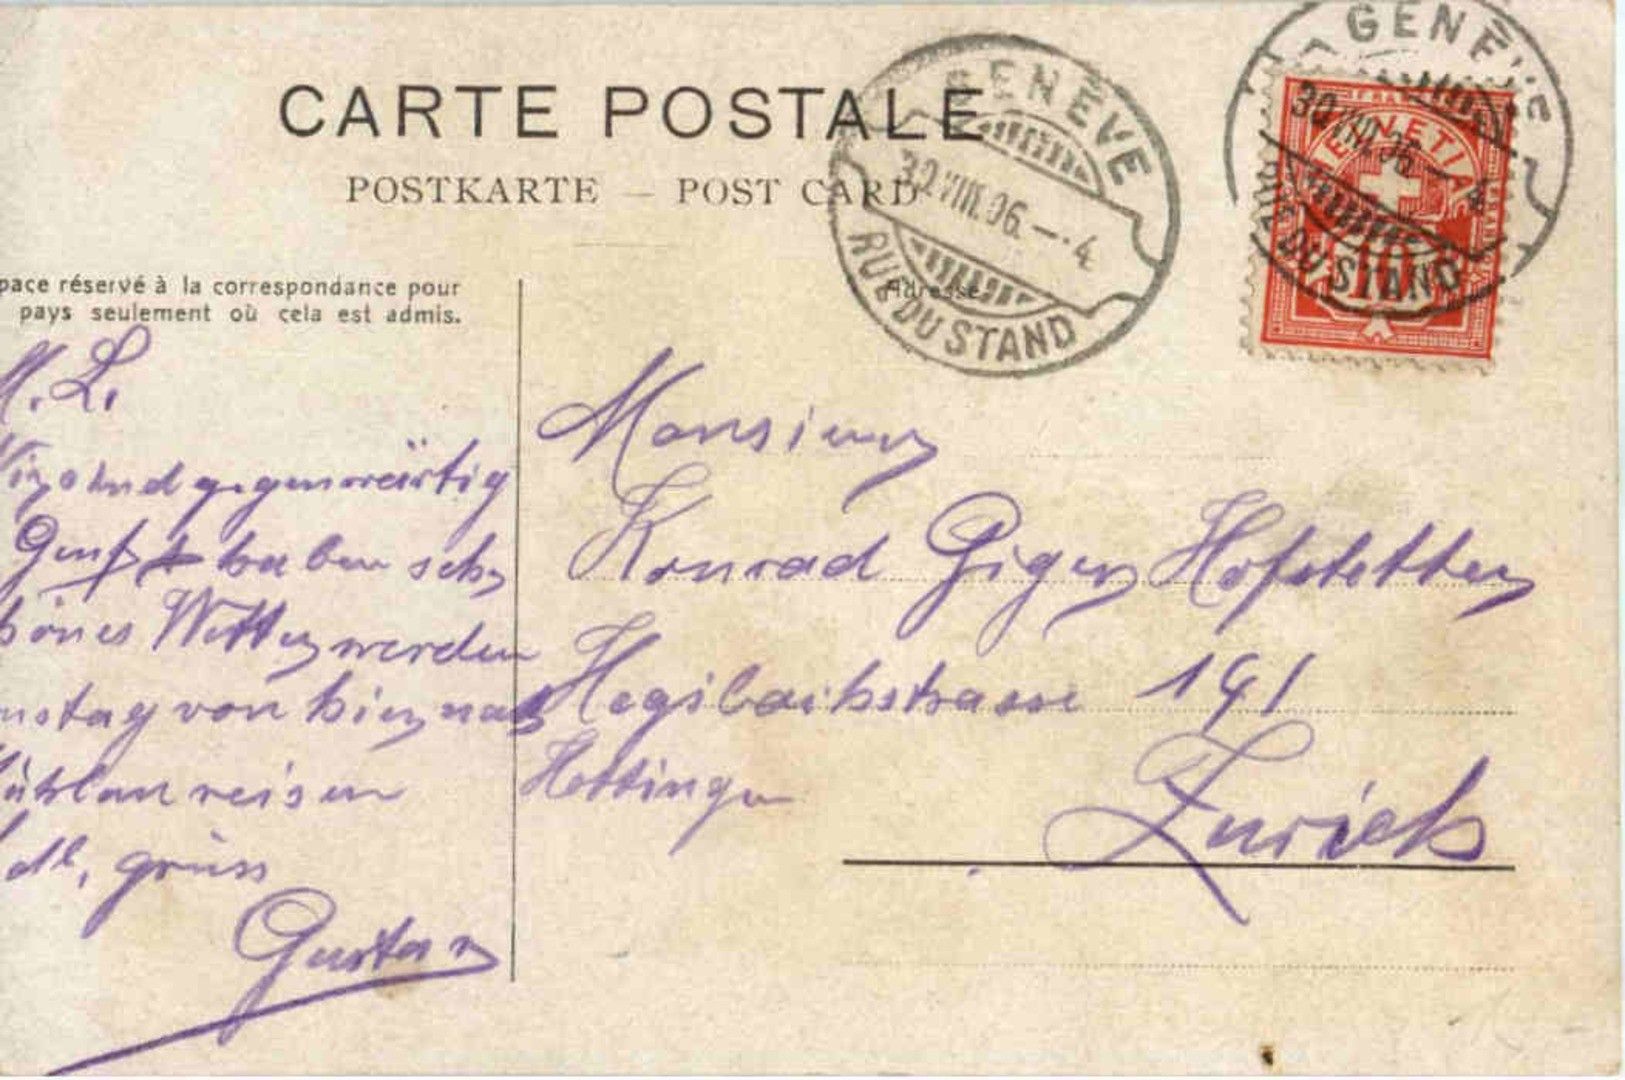 CARTE POSTALE
POSTKARTE – POST CARD
GENÈVE
30.VIII.06.–4
RUE DU STAND
GENÈVE
30.VIII.06.–4
RUE DU STAND
HELVETIA
10
pace réservé à la correspondance pour
pays seulement où cela est admis.
Adresse
M. L.
sind gegenwärtig
Genf haben sehr
hönes Wetter werden
nstag von hier nach
reisen
grüss
Gustav
Monsieur
Konrad Giger Hofstetter
Hegibachstrasse 191
Hottingen
Zurich